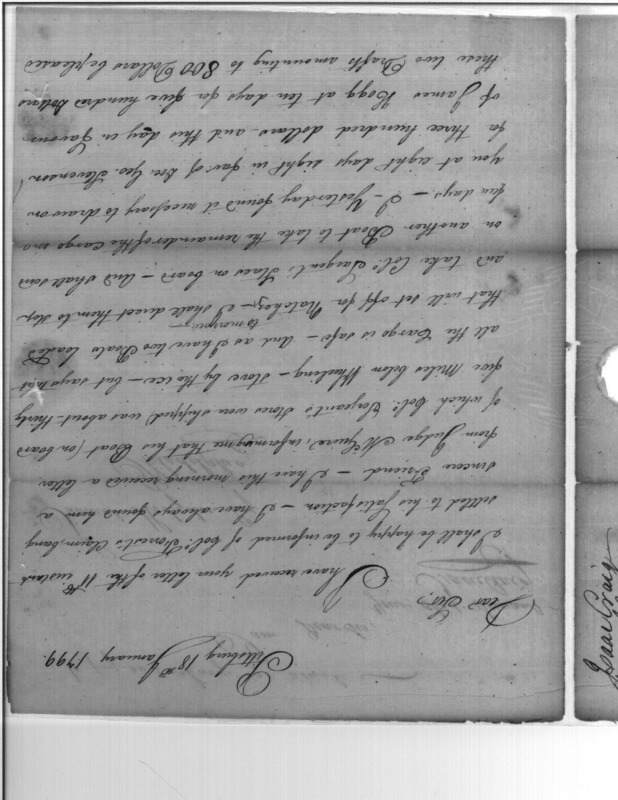 Pittsburg 18th January 1799.
Dear Sir,
I have received your letter of the 11th instant
I shall be happy to be informed of Colo. Forrest's Claim being
settled to his Satisfaction – I have always found him a
sincere Friend – I have this morning received a letter
from Judge informing me that his Boat (on board
of which Colo. Sergeant's Stores were shipped) was about thirty
five Miles below Wheeling – stove by the ice – but says that
all the Cargo is safe – And as I have two Boats loaded
that will set off for Natchez, to morrow – I shall direct them to stop
and take Colo. Sargent's Stores on board – And shall send
on another Boat to take the remainder of the Cargo in a
few days – I Yesterday found it necessary to draw on
you at eight days sight in fav: of Geo. Stevenson
for three hundred dollars and this day in favour
of James at ten days for five hundred Dollars
these two Drafts amounting to 800 Dollars be pleased
Isaac Craig